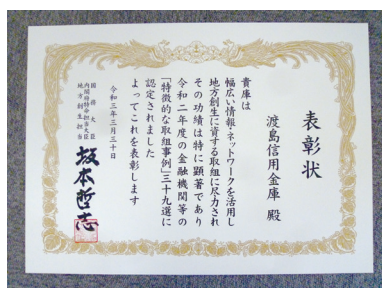 表彰状
渡島信用金庫 殿
貴庫は
幅広い情報・ネットワークを活用し
地方創生に資する取組に尽力され
その功績は特に顕著であり
令和二年度の金融機関等の
「特徴的な取組事例」三十九選に
認定されました
よってこれを表彰します
令和三年三月三十日
国務大臣
内閣府特命担当大臣
地方創生担当
坂本哲志